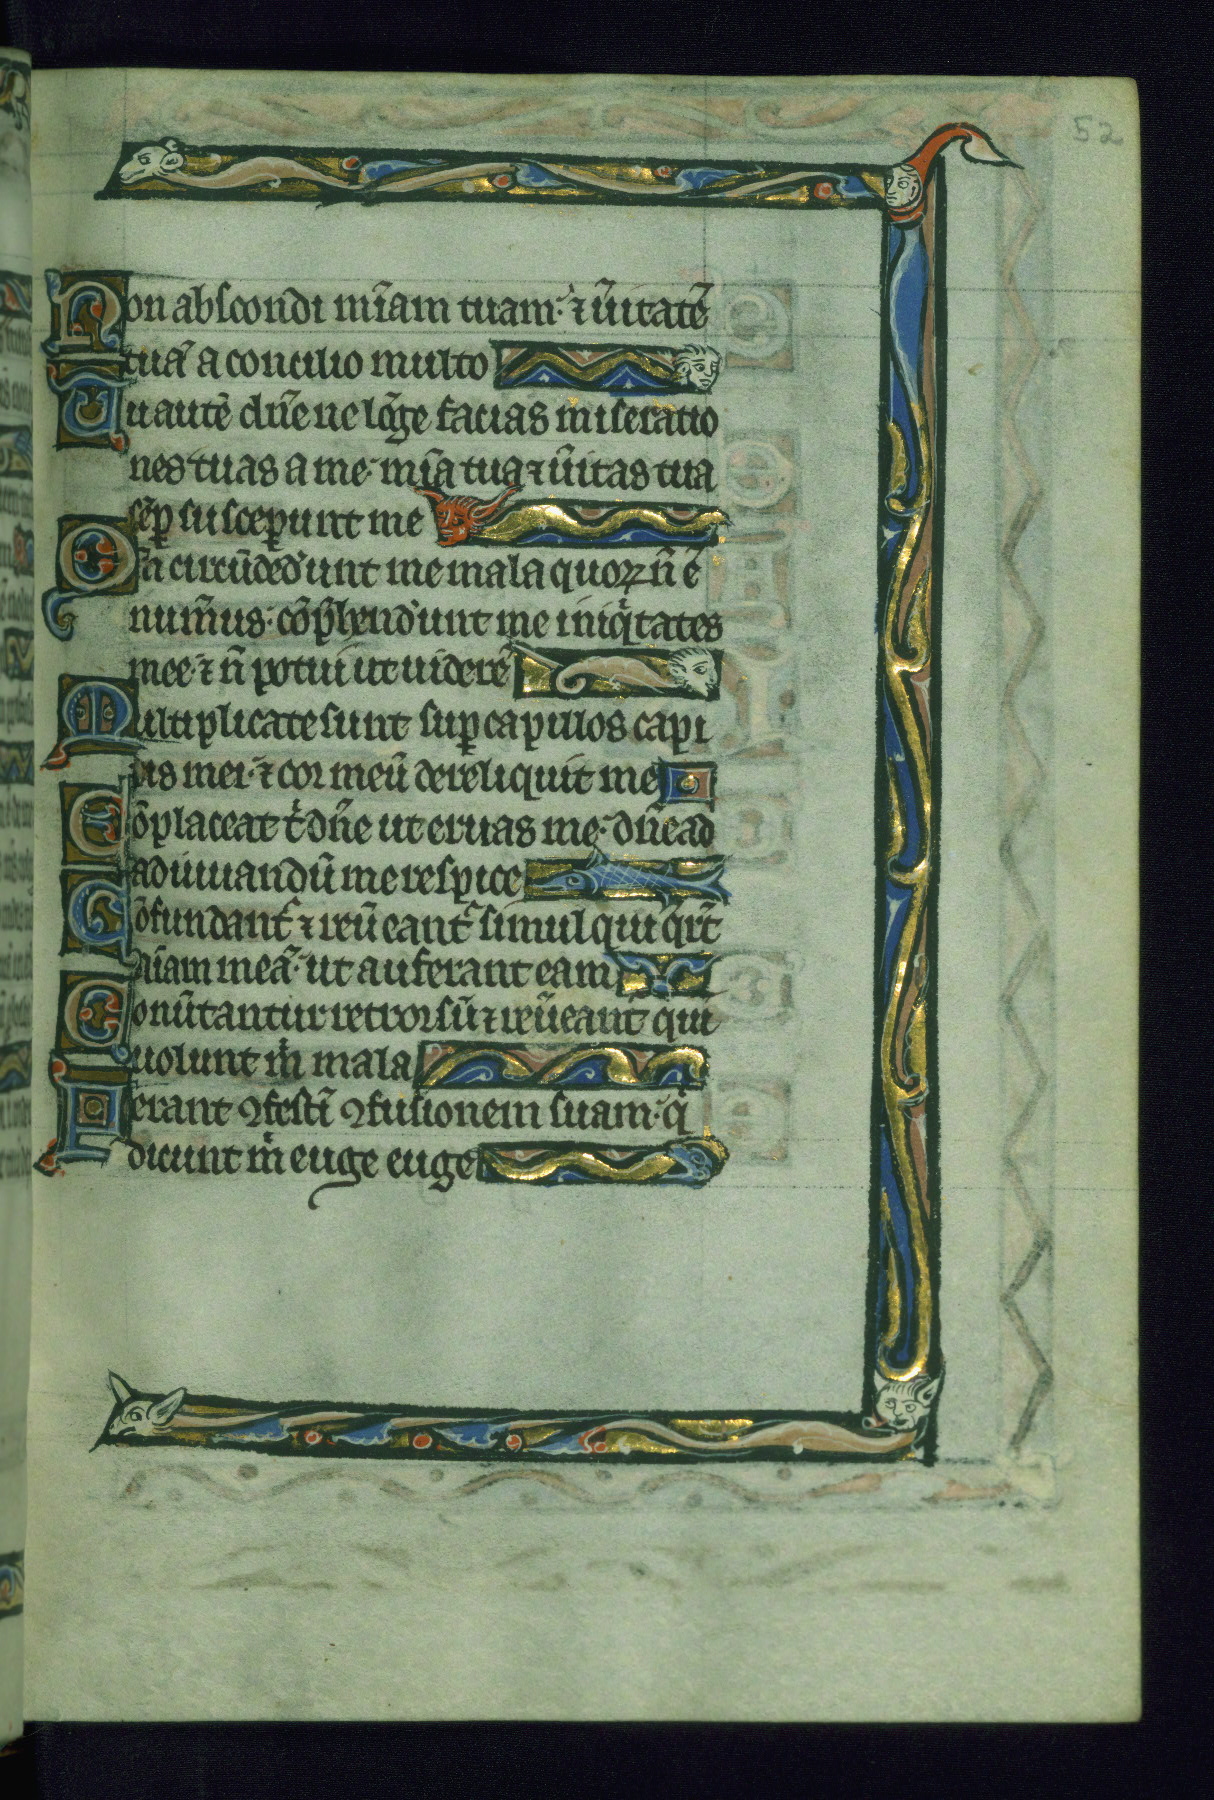 52
Non abscondi mīam tuam· ⁊ ūitatē
tuā a concilio multo
Tu autē dn̄e ne lōge facias miseratio
nes tuas a me· mīa tua ⁊ ūitas tua
sēꝑ susceꝑunt me
Qm̄ circūdederunt me mala quoꝝ n̄ ē
num̄us· cōp̄henderunt me iniqͥtates
mee· ⁊ n̄ potui ut uiderē
Multiplicate sunt suꝑ capillos capi
tis mei· ⁊ cor meū dereliquit me
Cōplaceat tͥ dn̄e ut eruas me· dn̄e ad
adiuuandū me respice
Cōfundant᷑ ⁊ reūeant᷑ simul qui q̄rt̄
aīam meā· ut auferant eam
Conūtantur retrorsū ⁊ reūeant᷑ qui
uolunt mͥ mala
Ferant ꝯfestī ꝯfusionem suam· qͥ
dicunt mͥ euge euge